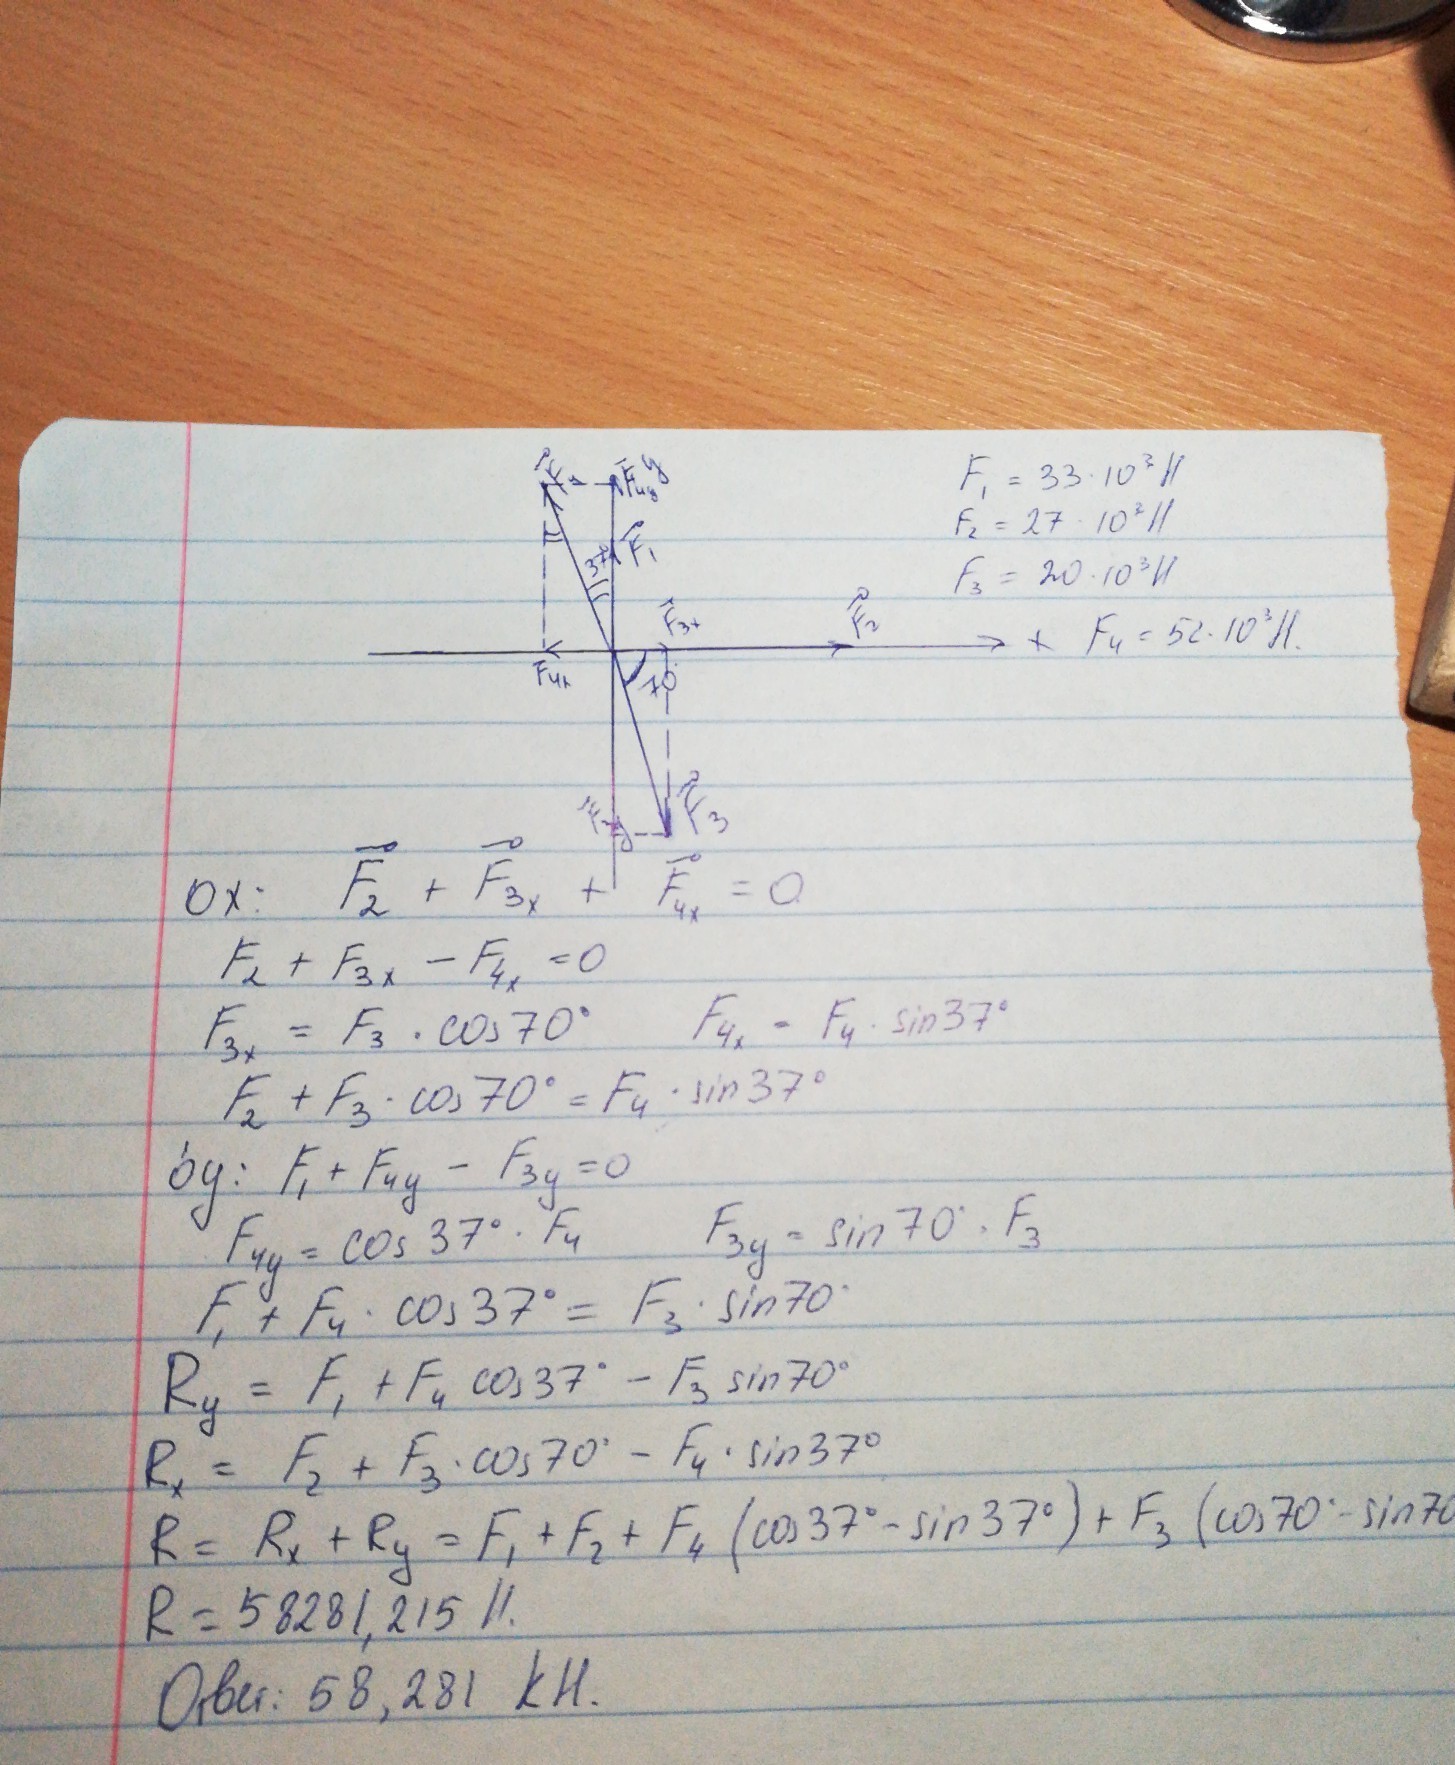 F₄ F₄y y
F₁ = 33·10³ Н
F₂ = 27·10³ Н
37° F₁
F₃ = 20·10³ Н
F₃x F₂ x F₄ = 52·10³ Н.
F₄x 70°
F₃y F₃
ox: F₂ + F₃x + F₄x = 0
F₂ + F₃x − F₄x = 0
F₃x = F₃ · cos70° F₄x = F₄ · sin37°
F₂ + F₃ · cos70° = F₄ · sin37°
oy: F₁ + F₄y − F₃y = 0
F₄y = cos 37° · F₄ F₃y = sin70° · F₃
F₁ + F₄ · cos37° = F₃ · sin70°
Ry = F₁ + F₄ cos37° − F₃ sin70°
Rx = F₂ + F₃ · cos70° − F₄ · sin37°
R = Rx + Ry = F₁ + F₂ + F₄ (cos37° − sin37°) + F₃ (cos70° − sin70
R = 58281,215 Н.
Ответ: 58,281 кН.